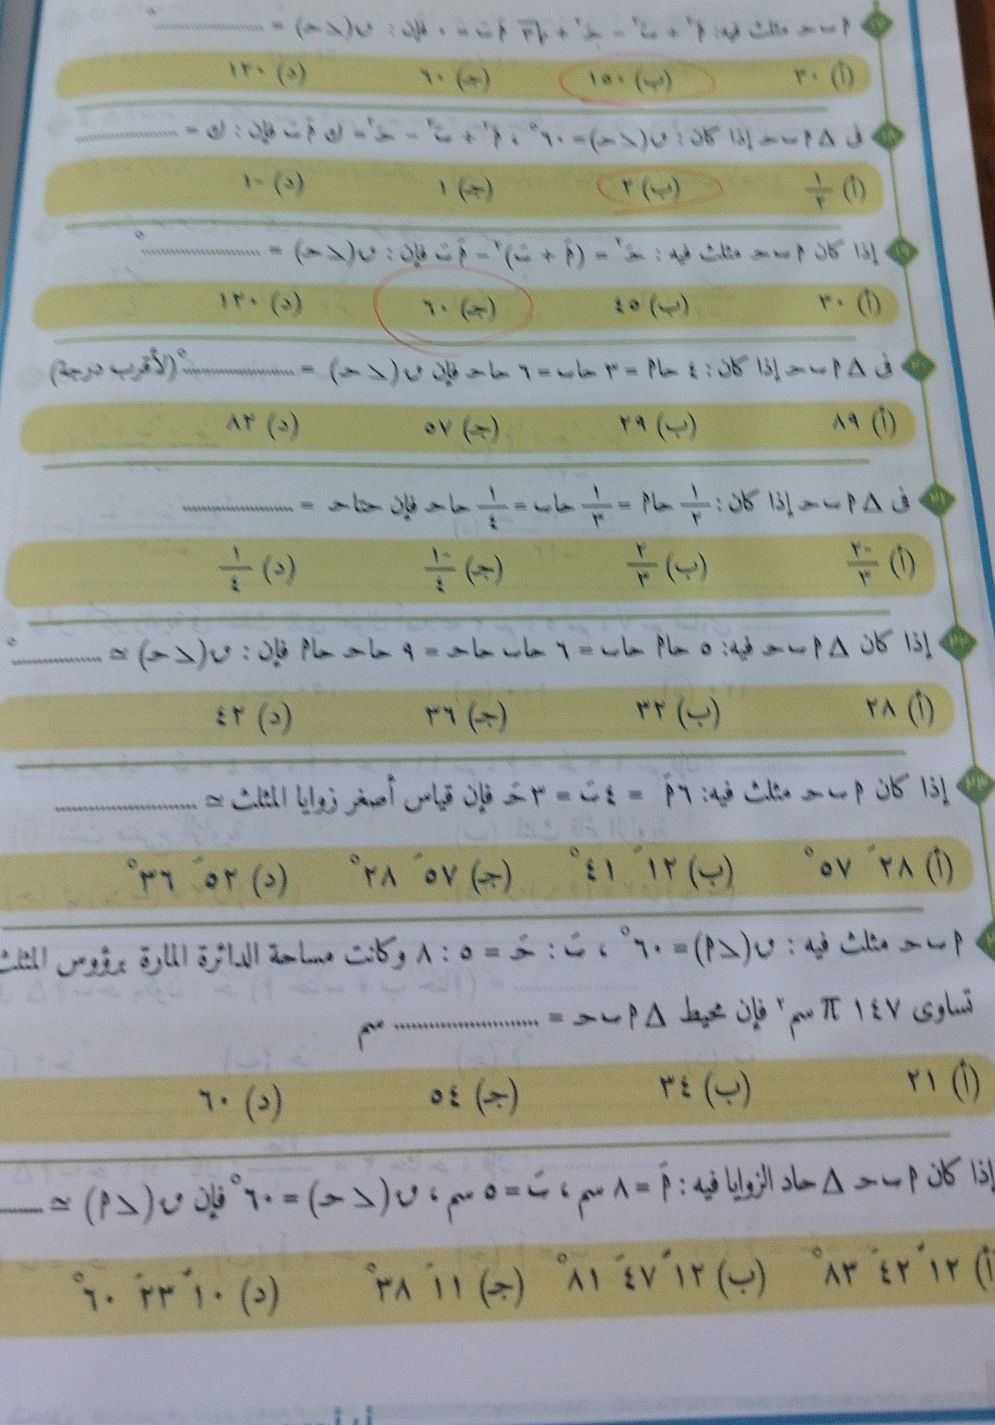 ١٧ م ب حـ مثلث فيه: مَ٢ + بَ٢ − حـَ٢ + √٣ مَ بَ = ٠ فإن : ق(∠حـ) = ....................°
(أ) ٣٠ (ب) ١٥٠ (جـ) ٦٠ (د) ١٢٠
١٨ فى Δ م ب حـ إذا كان : ق(∠حـ) = ٦٠° ، مَ٢ + بَ٢ − حـَ٢ = ك مَ بَ فإن : ك = ....................
(أ) ١/٢ (ب) ٢ (جـ) ١ (د) -١
١٩ إذا كان م ب حـ مثلث فيه : حـَ٢ = (مَ + بَ)٢ − مَ بَ فإن : ق(∠حـ) = ....................°
(أ) ٣٠ (ب) ٤٥ (جـ) ٦٠ (د) ١٢٠
٢٠ فى Δ م ب حـ إذا كان : ٤ حا م = ٣ حا ب = ٦ حا حـ فإن ق(∠حـ) = ....................° (لأقرب درجة)
(أ) ٨٩ (ب) ٢٩ (جـ) ٥٧ (د) ٨٢
٢١ فى Δ م ب حـ إذا كان : ١/٢ حا م = ١/٣ حا ب = ١/٤ حا حـ فإن حتا حـ = ....................
(أ) -٢/٣ (ب) ٢/٣ (جـ) -١/٤ (د) ١/٤
٢٢ إذا كان Δ م ب حـ فيه: ٥ حا م حا ب = ٦ حا ب حا حـ = ٩ حا حـ حا م فإن : ق(∠حـ) ≃ ....................°
(أ) ٢٨ (ب) ٣٢ (جـ) ٣٦ (د) ٤٢
٢٣ إذا كان م ب حـ مثلث فيه: ٦ مَ = ٤ بَ = ٣ حـَ فإن قياس أصغر زوايا المثلث ≃ ....................
(أ) ٢٨ َ ٥٧° (ب) ١٢ َ ٤١° (جـ) ٥٧ َ ٢٨° (د) ٥٢ َ ٣٦°
م ب حـ مثلث فيه : ق(∠م) = ٦٠° ، بَ : حـَ = ٥ : ٨ وكانت مساحة الدائرة المارة برؤوس المثلث
تساوى ١٤٧ π سم٢ فإن محيط Δ م ب حـ = .................... سم
(أ) ٢١ (ب) ٣٤ (جـ) ٥٤ (د) ٦٠
إذا كان م ب حـ Δ حاد الزوايا فيه : مَ = ٨ سم ، بَ = ٥ سم ، ق(∠حـ) = ٦٠° فإن ق(∠م) ≃ ......
(أ) ١٢ ً ٤٢ َ ٨٣° (ب) ١٢ ً ٤٧ َ ٨١° (جـ) ١١ َ ٣٨° (د) ١٠ ً ٢٣ َ ٦٠°